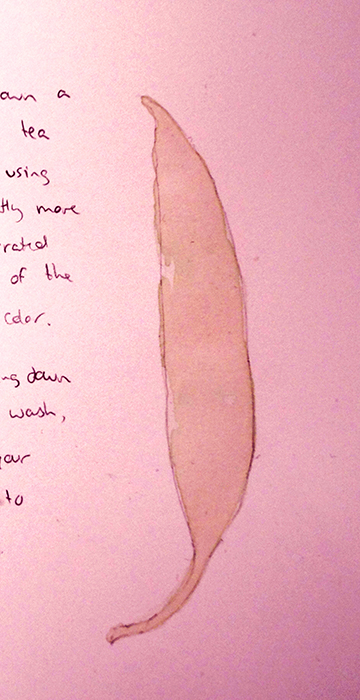 awn a
tea
using
tly more
rated
of the
color.
ng down
wash,
our
to